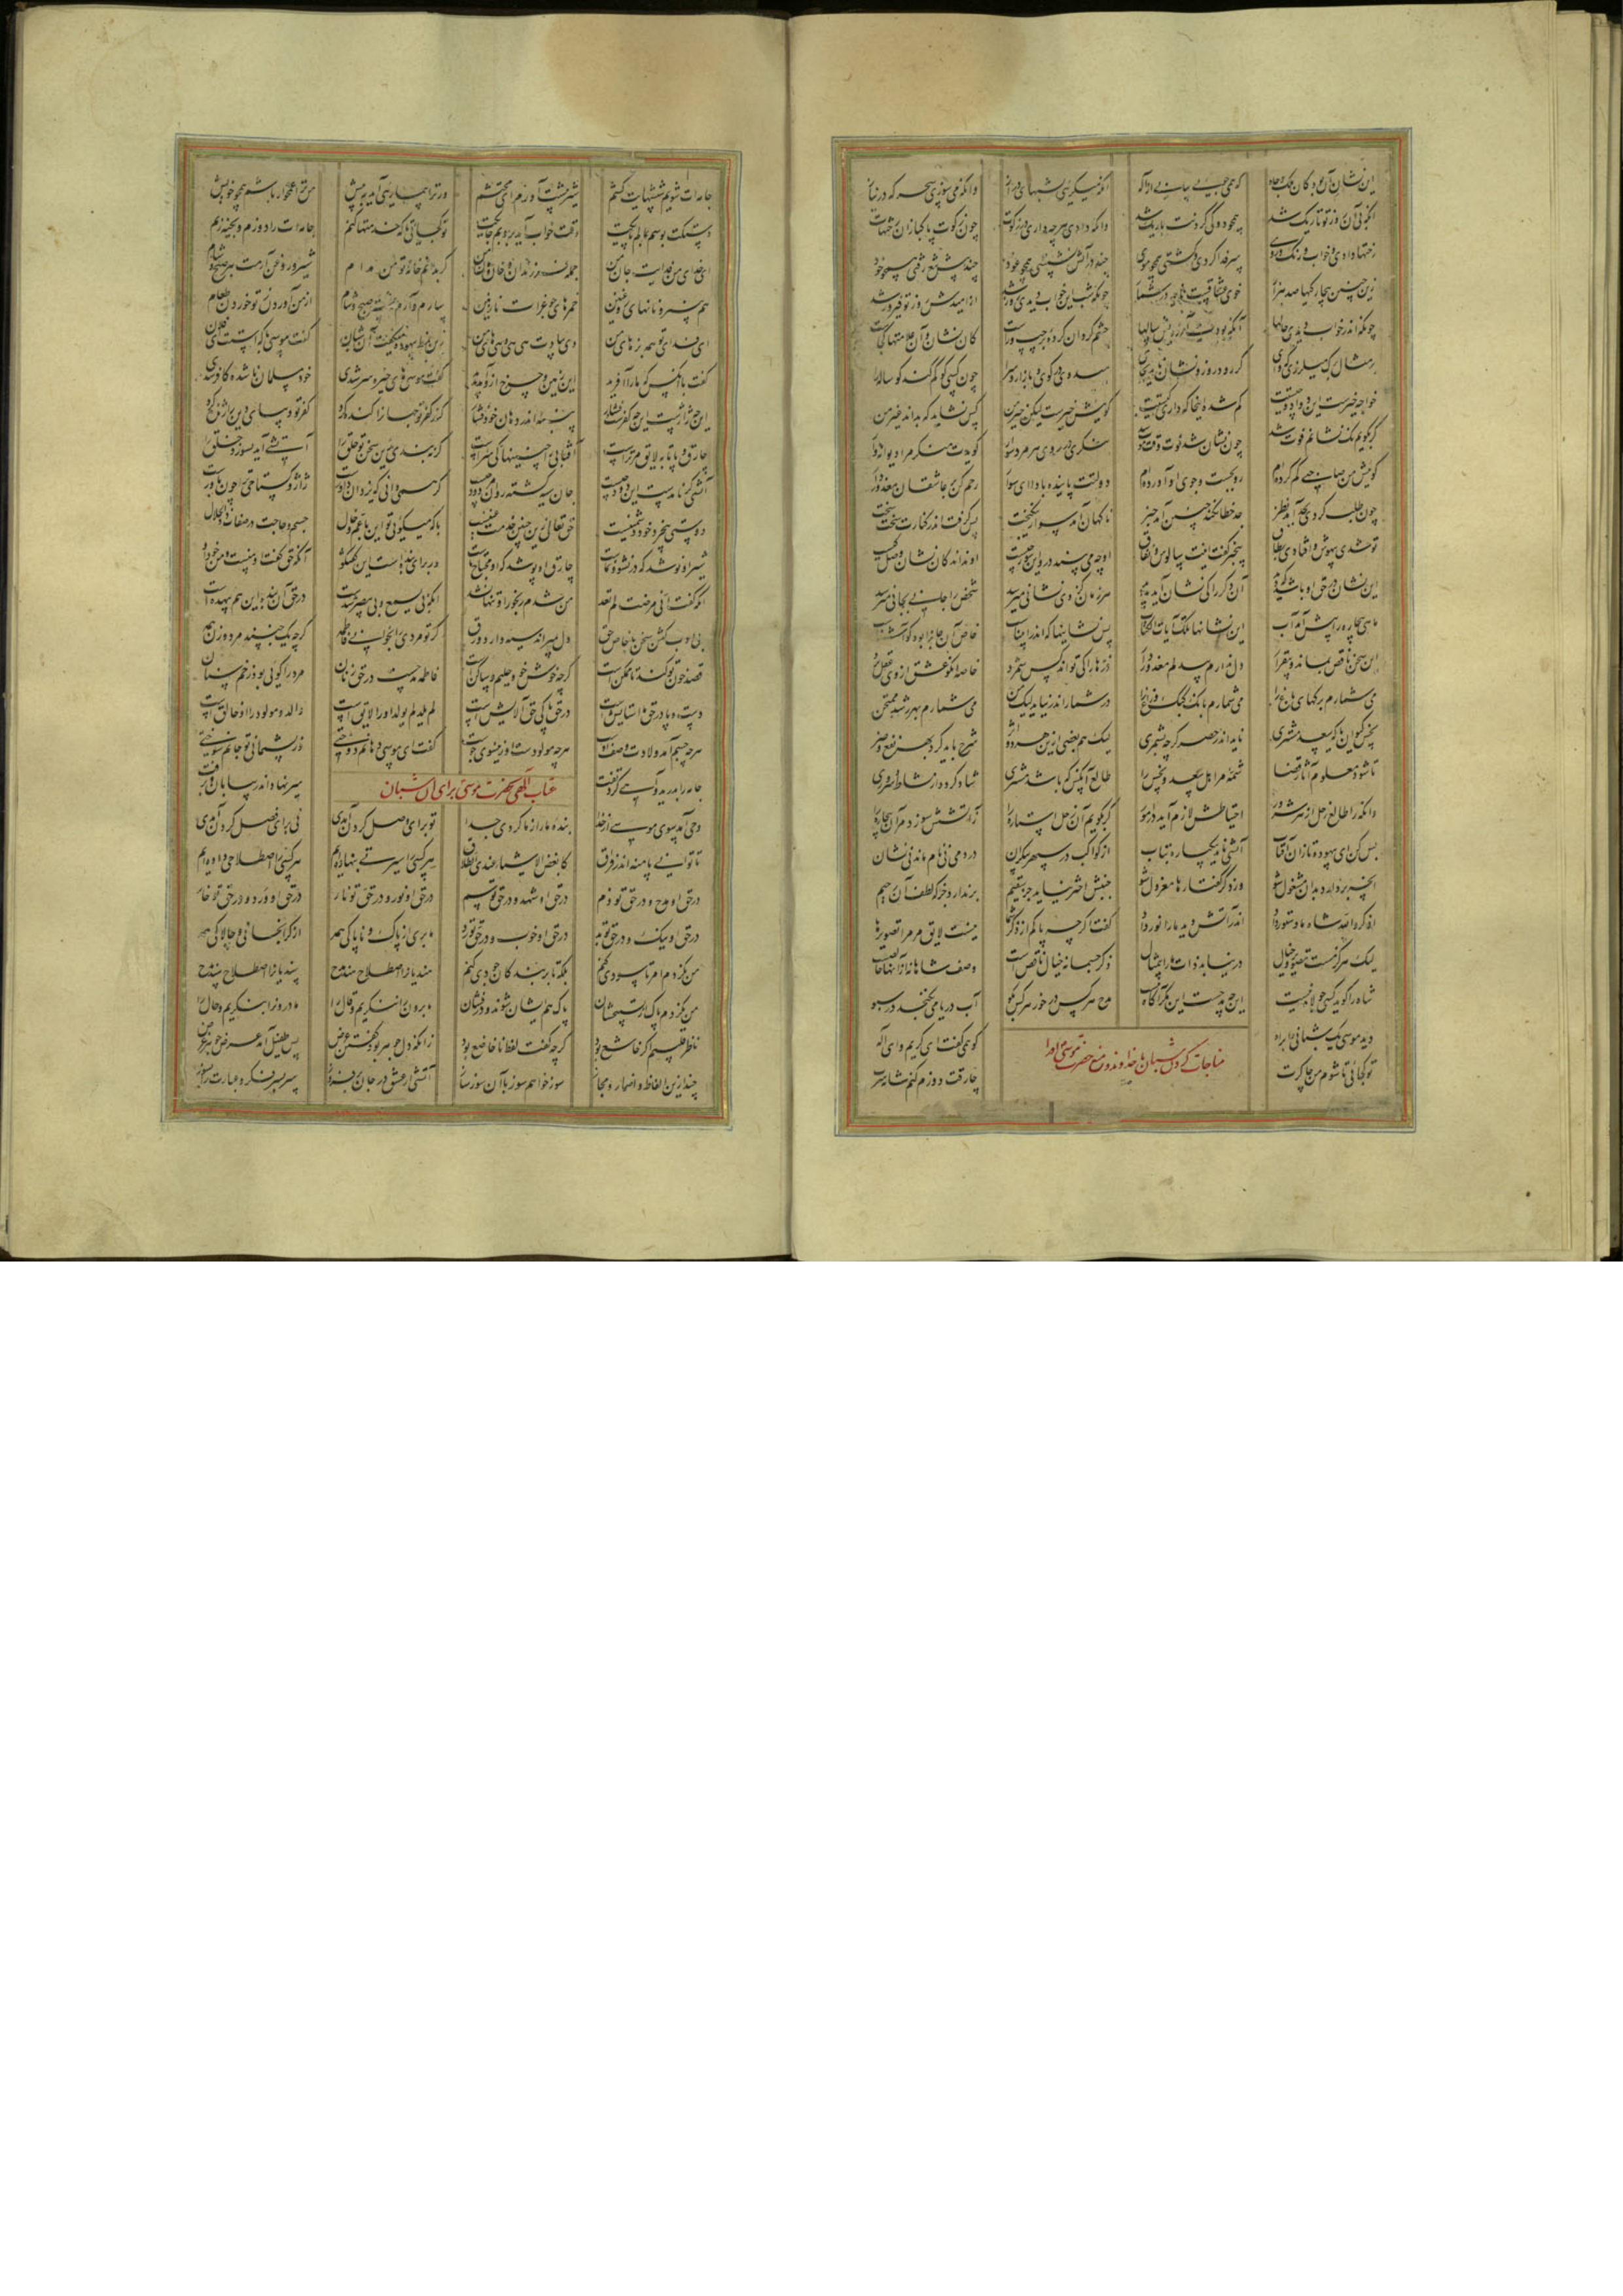 این نشان آن بود کان ملک و جاه که همی جویی بیابی از اله آنکه میگریی بشبهای دراز وانکه می سوزی سحرگه در نیاز
آنکه بی آن روز تو تاریک شد همچو دوکی گردنت باریک شد وانکه دادی هرچه داری در زکوت چون زکوت پاکبازان رختهات
رختها دادی و خواب و رنگ روی سر فدا کردی و گشتی همچو موی چند در آتش نشستی همچو عود چند پیش تیغ رفتی همچو خود
زین چنین بیچارگیها صد هزار خوی عشاقست در شمار چونکه شب این خواب دیدی روز شد از امیدش روز تو فیروز شد
چونکه اندر خواب دیدی حالها آنکه بودیت آرزویش سالها چشم گردان کرده بر چپ و راست کان نشان و آن علامتها کجاست
بر مثال برگ میلرزی که وای گر رود روز و نشان ناید بجای میدوی در کوی و بازار و سرا چون کسی کو گم کند گوساله را
خواجه خیرست این دوادو چیست گم شده اینجا که داری کیستت گوییش خیرست لیکن خیر من کس نشاید که بداند غیر من
گر بگویم یک نشانم فوت شد چون نشان شد فوت وقت موت شد بنگری در روی هر مرد سوار گویدت منکر مرا دیوانه وار
گوییش من صاحبی گم کرده ام رو بجست و جوی او آورده ام دولتت پاینده بادا ای سوار رحم کن بر عاشقان معذور دار
چون طلب کردی بجد آید نظر جد خطا نکند چنین آمد خبر ناگهان آمد سواری نیکبخت پس گرفت اندر کنارت سخت سخت
تو شدی بیهوش و افتادی بطاق بیخبر گفت اینت سالوس و نفاق او چه می بیند درو این شور چیست او نداند کان نشان وصل کیست
این نشان در حق او باشد که دید آن دگر را کی نشان آید پدید هر زمان کز وی نشانی میرسید شخص را جانی بجانی میرسید
ماهی بیچاره را پیش آمد آب این نشانها تلک آیات الکتاب پس نشانیها که اندر انبیاست خاص آن جانرا بود کو آشناست
این سخن ناقص بماند و بیقرار دل ندارم بیدلم معذور دار ذره ها را کی تواند کس شمرد خاصه آنکو عشق از وی عقل برد
می شمارم برگهای باغ را می شمارم بانگ کبک و زاغ را در شمار اندر نیاید لیک من می شمارم بهر رشد ممتحن
نحس کیوان یا که سعد مشتری ناید اندر حصر گرچه بشمری لیک هم بعضی ازین هر دو اثر شرح باید کرد بهر نفع و ضر
تا شود معلوم آثار قضا شمه مر اهل سعد و نحس را طالع آنکس که باشد مشتری شاد گردد از نشاط و سروری
وانکه را طالع زحل از هر شرور احتیاطش لازم آید در امور گر بگویم آن زحل استاره را زآتشش سوزد مر آن بیچاره را
بس کن ای بیهوده تا زان آفتاب آتشی ناید بیکباره بتاب از کواکب در سپهر بیکران در دمی نی نام ماند نی نشان
مشغول شو وز دگر گفتارها معزول شو جنبش اختر نیاید جز عقیم برندارد جز که لطف آن رحیم
اذکروا الله شاه ما دستور داد اندر آتش دید ما را نور داد گفت اگرچه پاکم از ذکر شما نیست لایق مر مرا تصویرها
لیک هرگز مست تصویر و خیال در نیابد ذات ما را بی مثال ذکر جسمانه خیال ناقص است وصف شاهانه از آنها خالصست
شاه را گوید کسی جولاه نیست این چه مدحست این مگر آگاه نیست مدح هر کس در خور هر کس بگو آب دریا می نگنجد در سبو
دید موسی یک شبانی را براه کو همی گفت ای کریم و ای اله
مناجات کردن شبان با خداوند و منع حضرت موسی او را
تو کجائی تا شوم من چاکرت چارقت دوزم کنم شانه سرت
جامه ات شویم شپشهایت کشم شیر پیشت آورم ای محتشم ور ترا بیماریی آید به پیش من ترا غمخوار باشم همچو خویش
دستکت بوسم بمالم پایکت وقت خواب آید بروبم جایکت تو کجائی تا که خدمتها کنم جامه ات را دوزم و بخیه زنم
ای خدای من فدایت جان من جمله فرزندان و خان و مان من گر بدانم خانه تو من مدام شیر و روغن آرمت هر صبح و شام
هم پنیر و نانهای روغنین خمرهای جغرات نازنین سازم و آرم به پیشت صبح و شام از من آوردن ز تو خوردن طعام
ای فدای تو همه بزهای من وی بیادت هی هی و هیهای من زین نمط بیهوده میگفت آن شبان گفت موسی با کیستت ای فلان
گفت با آنکس که ما را آفرید این زمین و چرخ ازو آمد پدید گفت موسی های خیره سر شدی خود مسلمان ناشده کافر شدی
این چه ژاژست این چه کفرست و فشار پنبه اندر دهان خود فشار گند کفر تو جهانرا گنده کرد کفر تو دیبای دین را ژنده کرد
چارق و پاتابه لایق مر تراست آفتابی را چنینها کی سزاست گر نبندی زین سخن تو حلق را آتشی آید بسوزد خلق را
آتشی گر نامدست این دود چیست جان سیه گشته روان مردود چیست گر همی دانی که یزدان داورست ژاژ و گستاخی ترا چون باورست
دوستی بیخرد خود دشمنیست حق تعالی زین چنین خدمت غنیست با که میگوئی تو این با عم و خال جسم و حاجت در صفات ذو الجلال
شیر او نوشد که در نشو و نماست چارق او پوشد که او محتاج پاست ور برای بنده است این گفتگو آنکه حق گفت او منست و من خود او
آنکه گفت انی مرضت لم تعد من شدم رنجور او تنها نشد آنکه بی یسمع و بی یبصر شدست در حق آن بنده این هم بیهدست
بی ادب گفتن سخن با خاص حق دل بمیراند سیه دارد ورق گر تو مردی را بخوانی فاطمه گرچه یک جنسند مرد و زن همه
قصد خون تو کند تا ممکنست گرچه خوش خو و حلیم و ساکنست فاطمه مدحست در حق زنان مرد را گوئی بود زخم سنان
دست و پا در حق ما ستایش است در حق پاکی حق آلایش است لم یلد لم یولد او را لایق است والد و مولود را او خالق است
هرچه جسم آمد ولادت وصف اوست هرچه مولودست او زین سوی جوست گفت ای موسی دهانم دوختی وز پشیمانی تو جانم سوختی
جامه را بدرید و آهی کرد تفت سر نهاد اندر بیابان و برفت
عتاب الهی بحضرت موسی برای آن شبان
وحی آمد سوی موسی از خدا بنده ما را ز ما کردی جدا تو برای وصل کردن آمدی نی برای فصل کردن آمدی
تا توانی پا منه اندر فراق کابغض الاشیاء عندی الطلاق هر کسی را سیرتی بنهاده ایم هر کسی را اصطلاحی داده ایم
در حق او مدح و در حق تو ذم در حق او شهد و در حق تو سم در حق او نور و در حق تو نار در حق او ورد و در حق تو خار
در حق او نیک و در حق تو بد در حق او خوب و در حق تو رد ما بری از پاک و ناپاکی همه از گرانجانی و چالاکی همه
من نکردم امر تا سودی کنم بلکه تا بر بندگان جودی کنم هندیانرا اصطلاح هند مدح سندیانرا اصطلاح سند مدح
من نگردم پاک از تسبیحشان پاک هم ایشان شوند و درفشان ما برونرا ننگریم و قال را ما درونرا بنگریم و حال را
ناظر قلبیم اگر خاشع بود گرچه گفت لفظ ناخاضع بود زانکه دل جوهر بود گفتن عرض پس طفیل آمد عرض جوهر غرض
چند ازین الفاظ و اضمار و مجاز سوز خواهم سوز با آن سوز ساز آتشی از عشق در جان برفروز سر بسر فکر و عبارت را بسوز